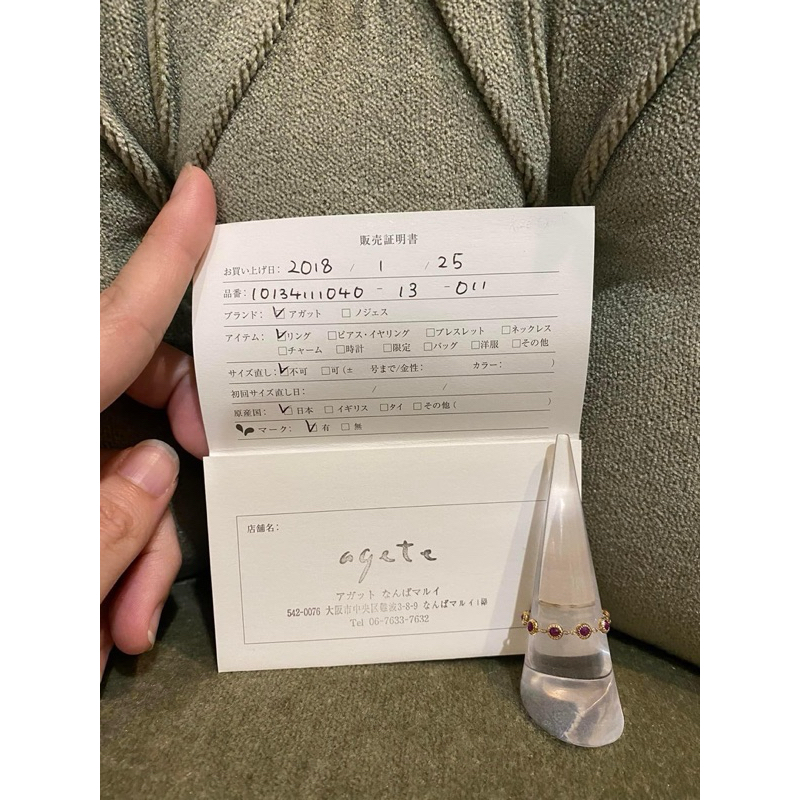 販売証明書
お買い上げ日: 2018 / 1 / 25
品番: 10134111040 - 13 - 011
ブランド: ☑ アガット □ ノジェス
アイテム: ☑リング □ピアス・イヤリング □ブレスレット □ネックレス
□チャーム □時計 □限定 □バッグ □洋服 □その他
サイズ直し: ☑不可 □可(± 号まで/金性: カラー: )
初回サイズ直し日: / /
原産国: ☑ 日本 □ イギリス □タイ □その他( )
マーク: ☑ 有 □ 無
店舗名:
agete
アガット なんばマルイ
542-0076 大阪市中央区難波3-8-9 なんばマルイ1階
Tel 06-7633-7632